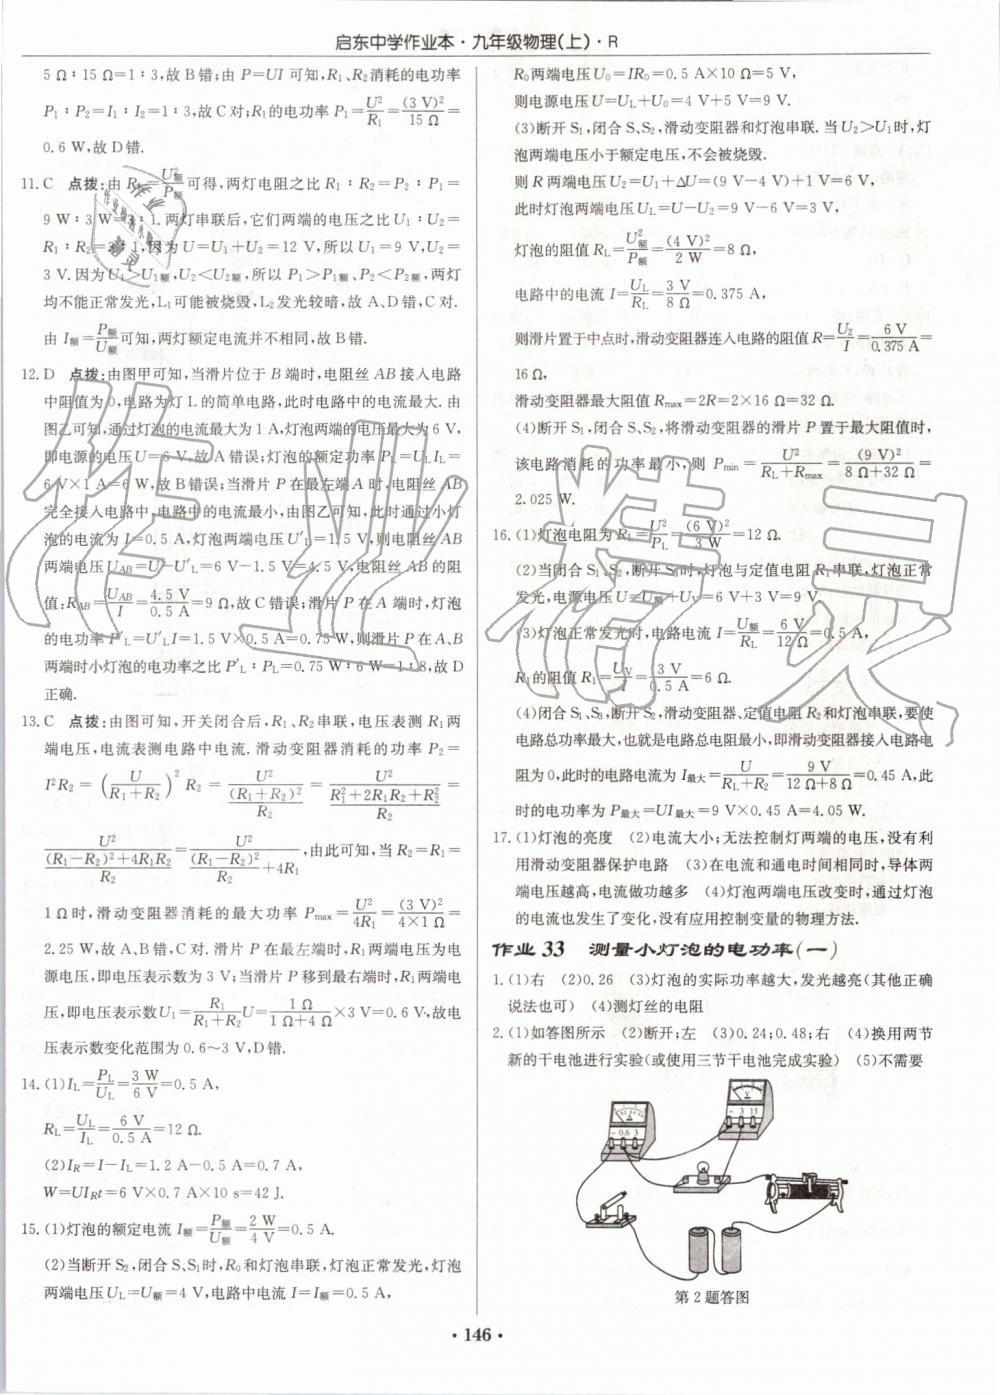 启东中学作业本·九年级物理(上)·R
5 Ω∶15 Ω=1∶3,故 B 错;由 P=UI 可知,R₁、R₂消耗的电功率
P₁∶P₂=I₁∶I₂=1∶3,故 C 对;R₁的电功率 P₁=U²/R₁=(3 V)²/15 Ω=
0.6 W,故 D 错.
11.C 点拨:由 R=U额²/P额 可得,两灯电阻之比 R₁∶R₂=P₂∶P₁=
9 W∶3 W=3∶1.两灯串联后,它们两端的电压之比 U₁∶U₂=
R₁∶R₂=3∶1,因为 U=U₁+U₂=12 V,所以 U₁=9 V,U₂=
3 V.因为U₁>U₁额,U₂<U₂额,所以 P₁>P₁额、P₂<P₂额,两灯
均不能正常发光,L₁可能被烧毁,L₂发光较暗,故 A、D 错,C 对.
由 I额=P额/U额可知,两灯额定电流并不相同,故 B 错.
12.D 点拨:由图甲可知,当滑片位于 B 端时,电阻丝 AB 接入电路
中阻值为 0,电路为灯 L 的简单电路,此时电路中的电流最大.由
图乙可知,通过灯泡的电流最大为 1 A,灯泡两端的电压最大为 6 V,
即电源的电压 U=6 V,故 A 错误;灯泡的额定功率 PL=ULIL=
6 V×1 A=6 W,故 B 错误;当滑片 P 在最左端 A 时,电阻丝 AB
完全接入电路中,电路中的电流最小,由图乙可知,此时通过小灯
泡的电流为 I=0.5 A,灯泡两端电压U′L=1.5 V,则电阻丝 AB
两端电压UAB=U−U′L=6 V−1.5 V=4.5 V,电阻丝 AB 的阻
值:RAB=UAB/I=4.5 V/0.5 A=9 Ω,故 C 错误;滑片 P 在 A 端时,灯泡
的电功率 P′L=U′LI=1.5 V×0.5 A=0.75 W,则滑片 P 在 A、B
两端时小灯泡的电功率之比 P′L∶PL=0.75 W∶6 W=1∶8,故 D
正确.
13.C 点拨:由图可知,开关闭合后,R₁、R₂串联,电压表测 R₁两
端电压,电流表测电路中电流.滑动变阻器消耗的功率 P₂=
I²R₂=(U/(R₁+R₂))²R₂=U²/((R₁+R₂)²/R₂)=U²/((R₁²+2R₁R₂+R₂²)/R₂)=
U²/(((R₁−R₂)²+4R₁R₂)/R₂)=U²/((R₁−R₂)²/R₂+4R₁),由此可知,当 R₂=R₁=
1 Ω时,滑动变阻器消耗的最大功率 Pmax=U²/4R₁=(3 V)²/(4×1 Ω)=
2.25 W,故 A、B 错,C 对.滑片 P 在最左端时,R₁两端电压为电
源电压,即电压表示数为 3 V;当滑片 P 移到最右端时,R₁两端电
压,即电压表示数U₁=R₁/(R₁+R₂)U=1 Ω/(1 Ω+4 Ω)×3 V=0.6 V,故电
压表示数变化范围为 0.6~3 V,D 错.
14.(1)IL=PL/UL=3 W/6 V=0.5 A,
RL=UL/IL=6 V/0.5 A=12 Ω.
(2)IR=I−IL=1.2 A−0.5 A=0.7 A,
W=UIRt=6 V×0.7 A×10 s=42 J.
15.(1)灯泡的额定电流 I额=P额/U额=2 W/4 V=0.5 A.
(2)当断开 S₂,闭合 S、S₁时,R₀和灯泡串联,灯泡正常发光,灯泡
两端电压UL=U额=4 V,电路中电流 I=I额=0.5 A,
R₀两端电压U₀=IR₀=0.5 A×10 Ω=5 V,
则电源电压U=UL+U₀=4 V+5 V=9 V.
(3)断开 S₁,闭合 S、S₂,滑动变阻器和灯泡串联.当 U₂>U₁时,灯
泡两端电压小于额定电压,不会被烧毁.
则 R 两端电压U₂=U₁+ΔU=(9 V−4 V)+1 V=6 V,
此时灯泡两端电压UL=U−U₂=9 V−6 V=3 V,
灯泡的阻值 RL=U额²/P额=(4 V)²/2 W=8 Ω,
电路中的电流 I=UL/RL=3 V/8 Ω=0.375 A,
则滑片置于中点时,滑动变阻器连入电路的阻值 R=U₂/I=6 V/0.375 A=
16 Ω,
滑动变阻器最大阻值 Rmax=2R=2×16 Ω=32 Ω.
(4)断开 S₁,闭合 S、S₂,将滑动变阻器的滑片 P 置于最大阻值时,
该电路消耗的功率最小,则 Pmin=U²/(RL+Rmax)=(9 V)²/(8 Ω+32 Ω)=
2.025 W.
16.(1)灯泡电阻为 RL=U²/PL=(6 V)²/3 W=12 Ω.
(2)当闭合 S₁、S₂,断开 S₃时,灯泡与定值电阻 R₁串联,灯泡正常
发光,电源电压 U=U额+UV=6 V+3 V=9 V.
(3)灯泡正常发光时,电路电流 I=U额/RL=6 V/12 Ω=0.5 A,
R₁的阻值 R₁=UV/I=3 V/0.5 A=6 Ω.
(4)闭合 S₁、S₃,断开 S₂,滑动变阻器、定值电阻 R₂和灯泡串联,要使
电路总功率最大,也就是电路总电阻最小,即滑动变阻器接入电路电
阻为 0,此时的电路电流为 I最大=U/(RL+R₂)=9 V/(12 Ω+8 Ω)=0.45 A,此
时的电功率为 P最大=UI最大=9 V×0.45 A=4.05 W.
17.(1)灯泡的亮度 (2)电流大小;无法控制灯两端的电压,没有利
用滑动变阻器保护电路 (3)在电流和通电时间相同时,导体两
端电压越高,电流做功越多 (4)灯泡两端电压改变时,通过灯泡
的电流也发生了变化,没有应用控制变量的物理方法.
作业 33 测量小灯泡的电功率(一)
1.(1)右 (2)0.26 (3)灯泡的实际功率越大,发光越亮(其他正确
说法也可) (4)测灯丝的电阻
2.(1)如答图所示 (2)断开;左 (3)0.24;0.48;右 (4)换用两节
新的干电池进行实验(或使用三节干电池完成实验) (5)不需要
V
− 3 15
− 0.6 3
第 2 题答图
·146·
作业精灵